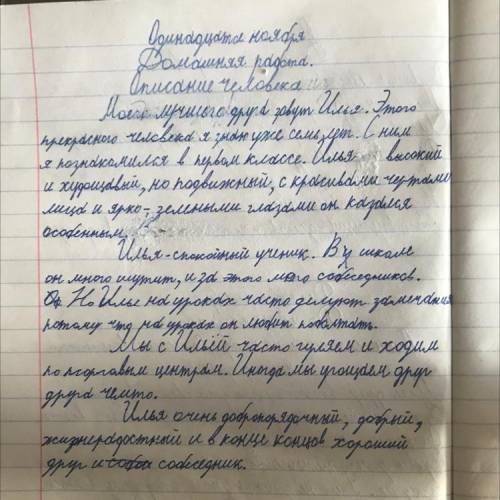 Одинадцата ноября
Домашняя работа.
Описание человека
Моего лучшего друга зовут Илья. Этого
прекрасного человека я знаю уже семь лет. С ним
я познакомился в первом классе. Илья высокий
и худощавый, но подвижный, с красивами чертами
лица и ярко-зелеными глазами он казался
особенным.
Илья-спокойный ученик. В школе
он много шутит, и за этого много собеседников.
Но Илье на уроках часто делуют замечания
потому что на уроках он любит поболтать.
Мы с Ильёй часто гуляем и ходим
по торговым центрам. Иногда мы угощаем друг
друга чемто.
Илья очень добропорядочный, добрый,
жизнерадостный и в конце концов хороший
друг и собеседник.